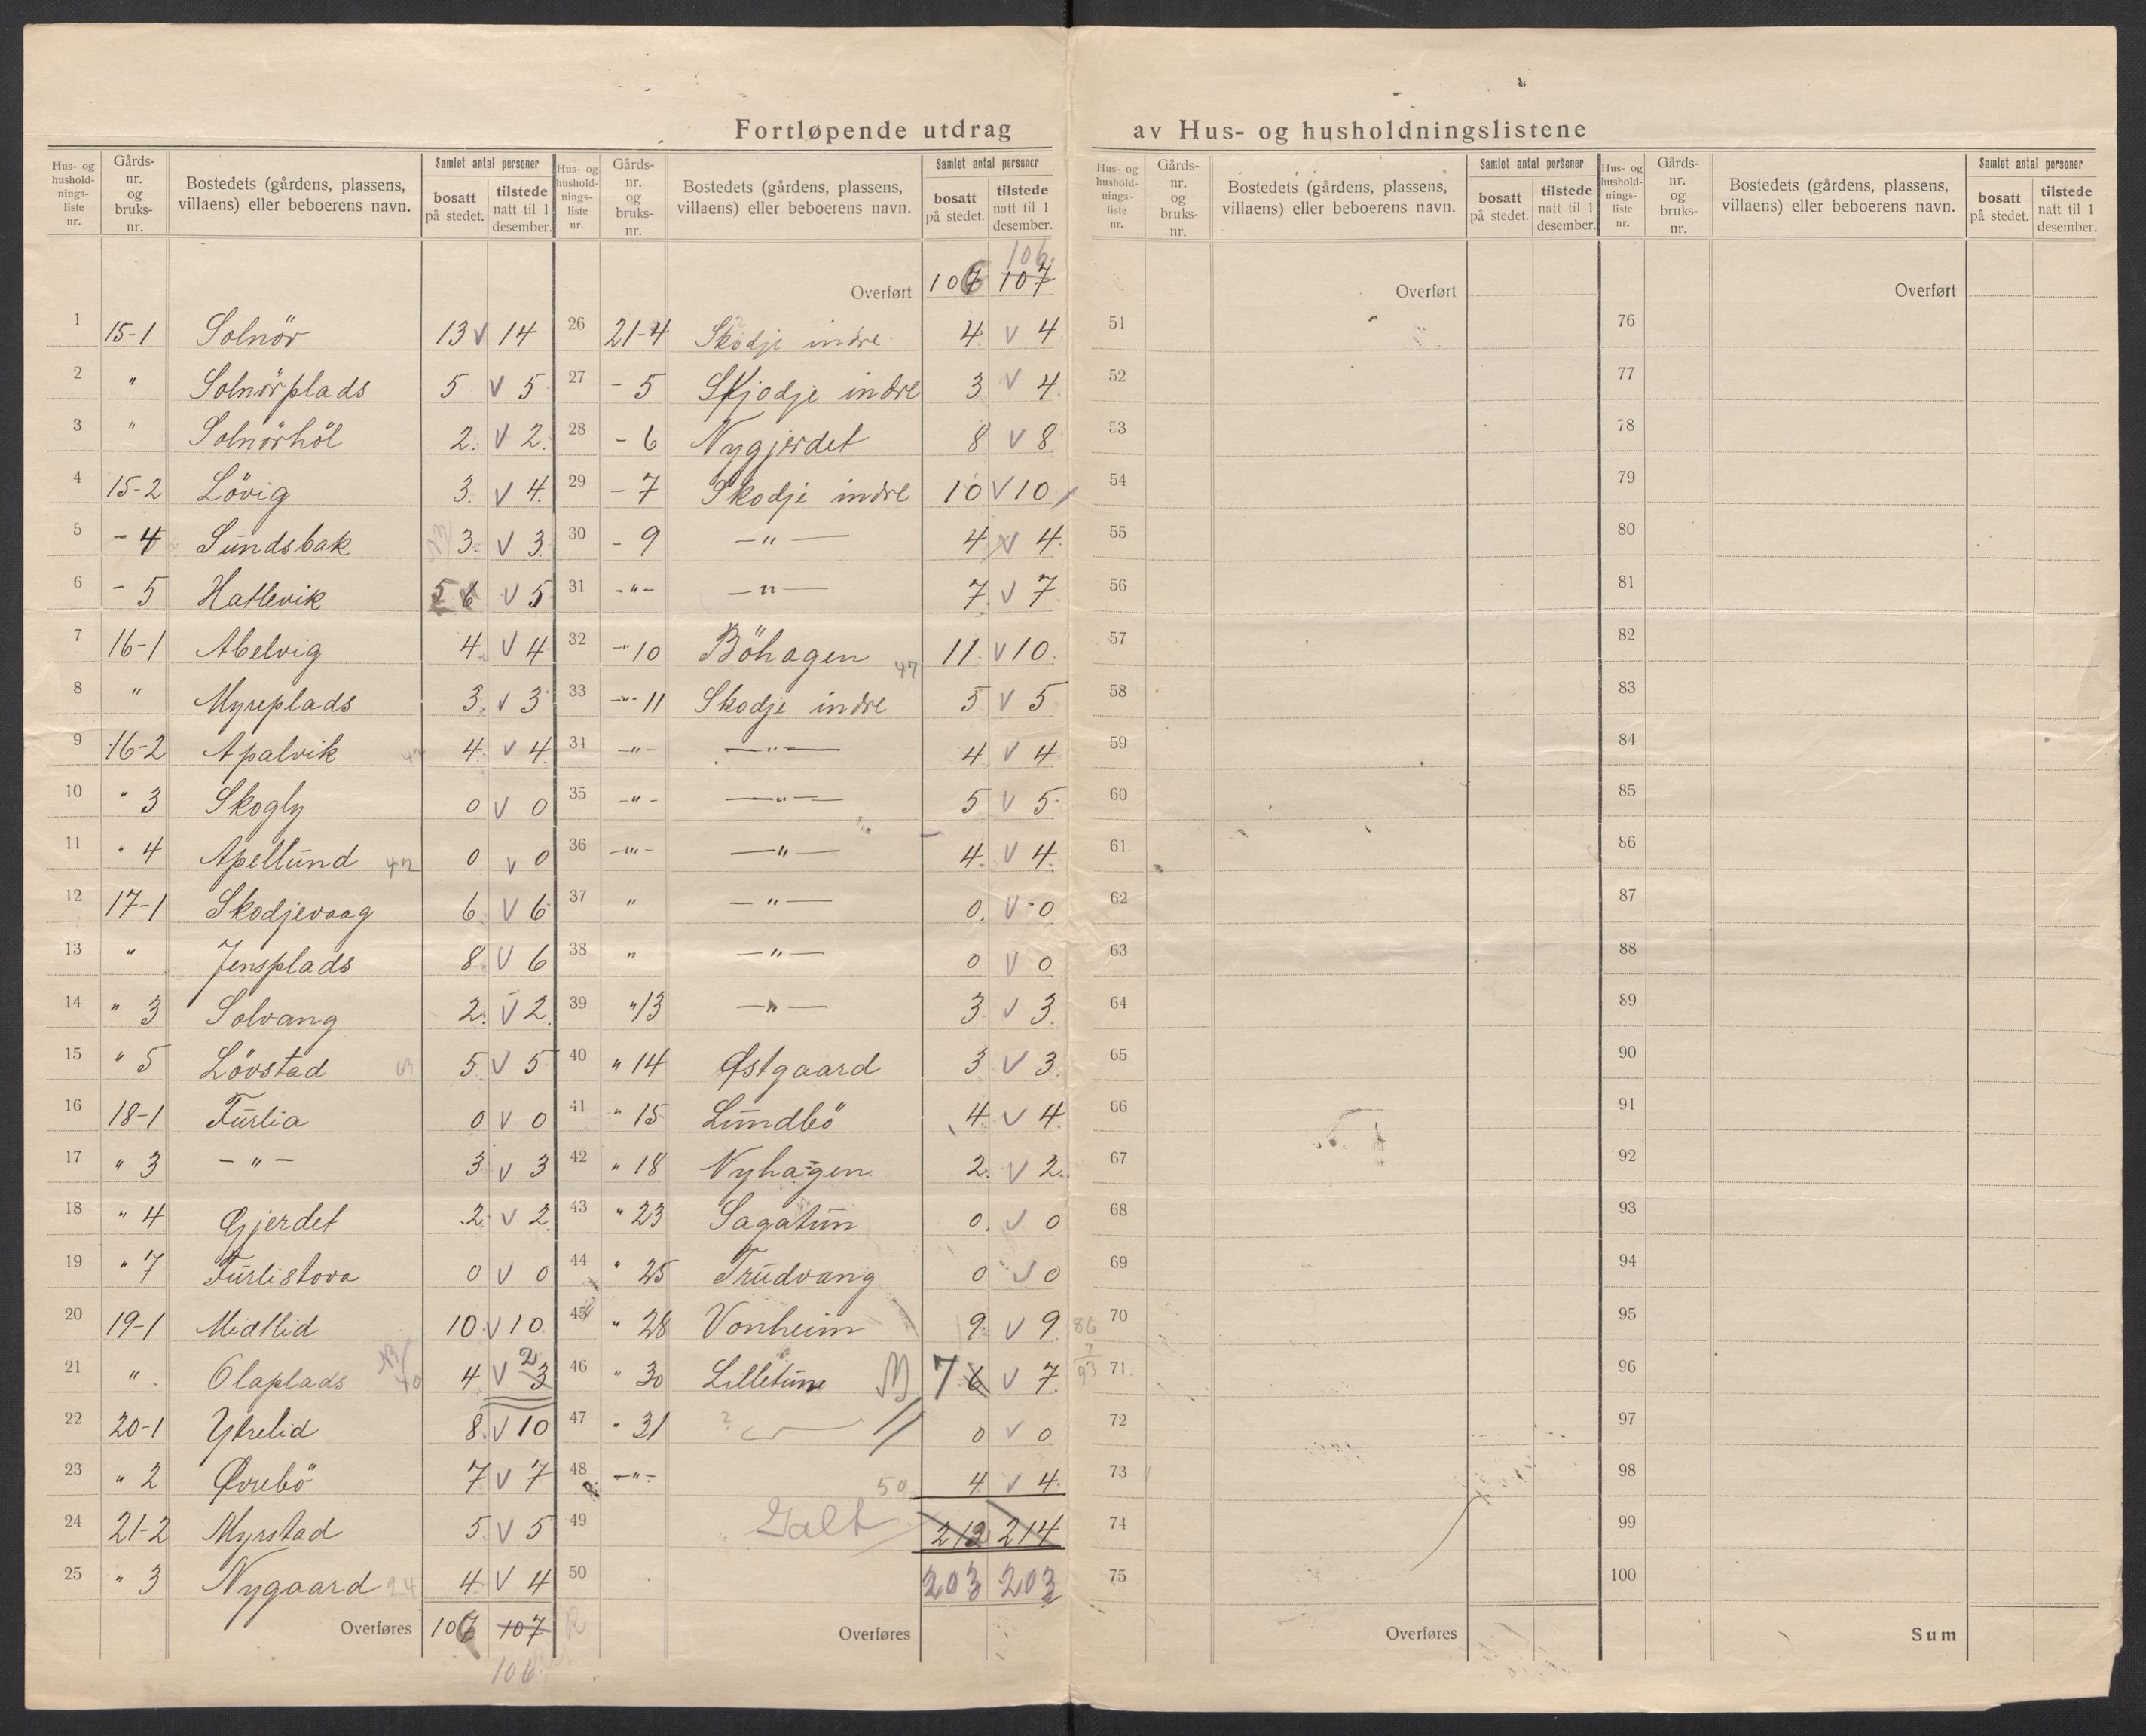 Fortløpende utdrag av Hus- og husholdningslistene
Hus- og hushold-nings-liste nr. Gårds-nr. og bruks-nr. Bostedets (gårdens, plassens, villaens) eller beboerens navn. Samlet antal personer bosatt på stedet. tilstede natt til 1 desember.
1 15-1 Solnör 13 v 14
2 " Solnörplads 5 v 5
3 " Solnörhöl 2. v 2.
4 15-2 Lövig 3. v 4.
5 - 4 Sundsbak 3. v 3.
6 - 5 Hatlevik 5 6 v 5
7 16-1 Abelvig 4 v 4
8 " Myreplads 3. v 3
9 16-2 Apalvik 4. v 4.
10 " 3 Skogly 0 v 0
11 " 4 Apellund 42 0 v 0
12 17-1 Skodjevaag 6 v 6
13 " Jensplads 8. v 6
14 " 3 Solvang 2. v 2.
15 " 5 Lövstad 5. v 5
16 18-1 Furlia 0 v 0
17 " 3 - " - 3. v 3
18 " 4 Gjerdet 2 v 2
19 " 7 Furlistova 0 v 0
20 19-1 Midtlid 10 v 10
21 " Olaplads 40 4 v 2 3
22 20-1 Ytrelid 8. v 10
23 " 2 Övrebö 7 v 7
24 21-2 Myrstad 5. v 5
25 " 3 Nygaard 24 4 v 4
Overføres 106 107
106
Hus- og hushold-nings-liste nr. Gårds-nr. og bruks-nr. Bostedets (gårdens, plassens, villaens) eller beboerens navn. Samlet antal personer bosatt på stedet. tilstede natt til 1 desember.
106.
Overført 106 107
26 21-4 Skodje indre 4 v 4
27 - 5 Skjodje indre 3 v 4.
28 - 6 Nygjerdet 8 v 8
29 - 7 Skodje indre 10 v 10
30 - 9 -"- 4 v 4.
31 -"- -"- 7. v 7
32 -"10 Böhagen 47 11. v 10.
33 -"-11 Skodje indre 5 v 5
34 -"- -"- 4 v 4
35 -"- -"- 5 v 5
36 -"- -"- 4. v 4.
37 " -"- 0. v 0
38 " -"- 0 v 0
39 "13 -"- 3 v 3.
40 "14 Østgaard 3 v 3.
41 "15 Lundbö 4. v 4.
42 "18 Nyhagen 2. v 2.
43 "23 Sagatun 0. v 0
44 "25 Trudvang 0 v 0
45 "28 Vonheim 9. v 9.
46 "30 Lilletun 7 6 v 7.
47 "31 ? 0 v 0
48 -"- 50 4 v 4.
49 Galt 212 214
50 203 203
Overføres
86
7
93
Hus- og hushold-nings-liste nr. Gårds-nr. og bruks-nr. Bostedets (gårdens, plassens, villaens) eller beboerens navn. Samlet antal personer bosatt på stedet. tilstede natt til 1 desember.
Overført
51
52
53
54
55
56
57
58
59
60
61
62
63
64
65
66
67
68
69
70
71
72
73
74
75
Overføres
Hus- og hushold-nings-liste nr. Gårds-nr. og bruks-nr. Bostedets (gårdens, plassens, villaens) eller beboerens navn. Samlet antal personer bosatt på stedet. tilstede natt til 1 desember.
Overført
76
77
78
79
80
81
82
83
84
85
86
87
88
89
90
91
92
93
94
95
96
97
98
99
100
Sum